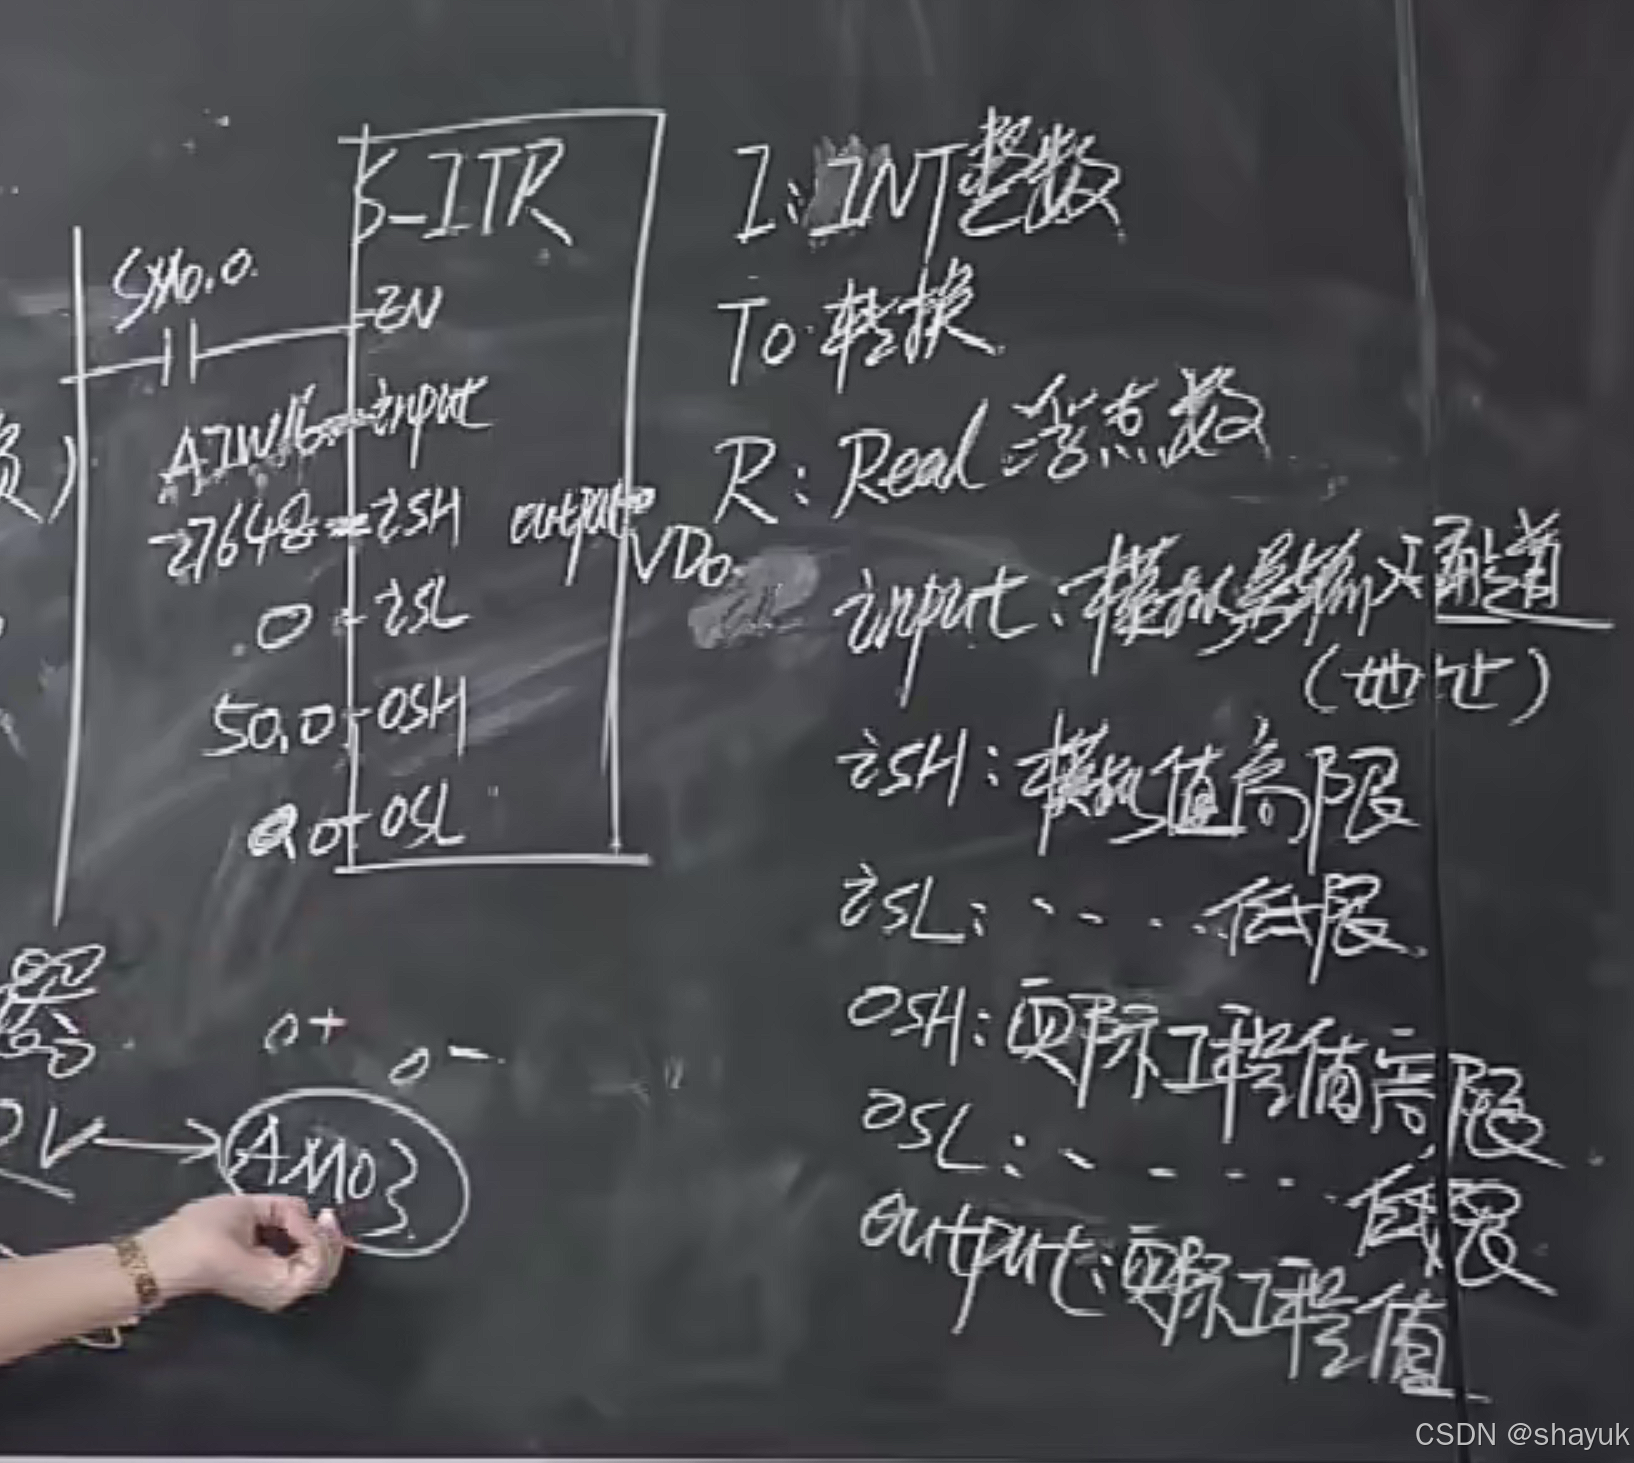 S_ITR
SM0.0
EN
AIW16
input
27648
ISH
output
VD0
0
ISL
50.0
OSH
0.0
OSL
I: INT整数
To 转换
R: Real 浮点数
input: 模拟量输入通道
(地址)
ISH: 模拟值高限
ISL: ····低限
OSH: 实际工程值高限
OSL: ····低限
output: 实际工程值
器
0+
0-
AM03
CSDN @shayuk